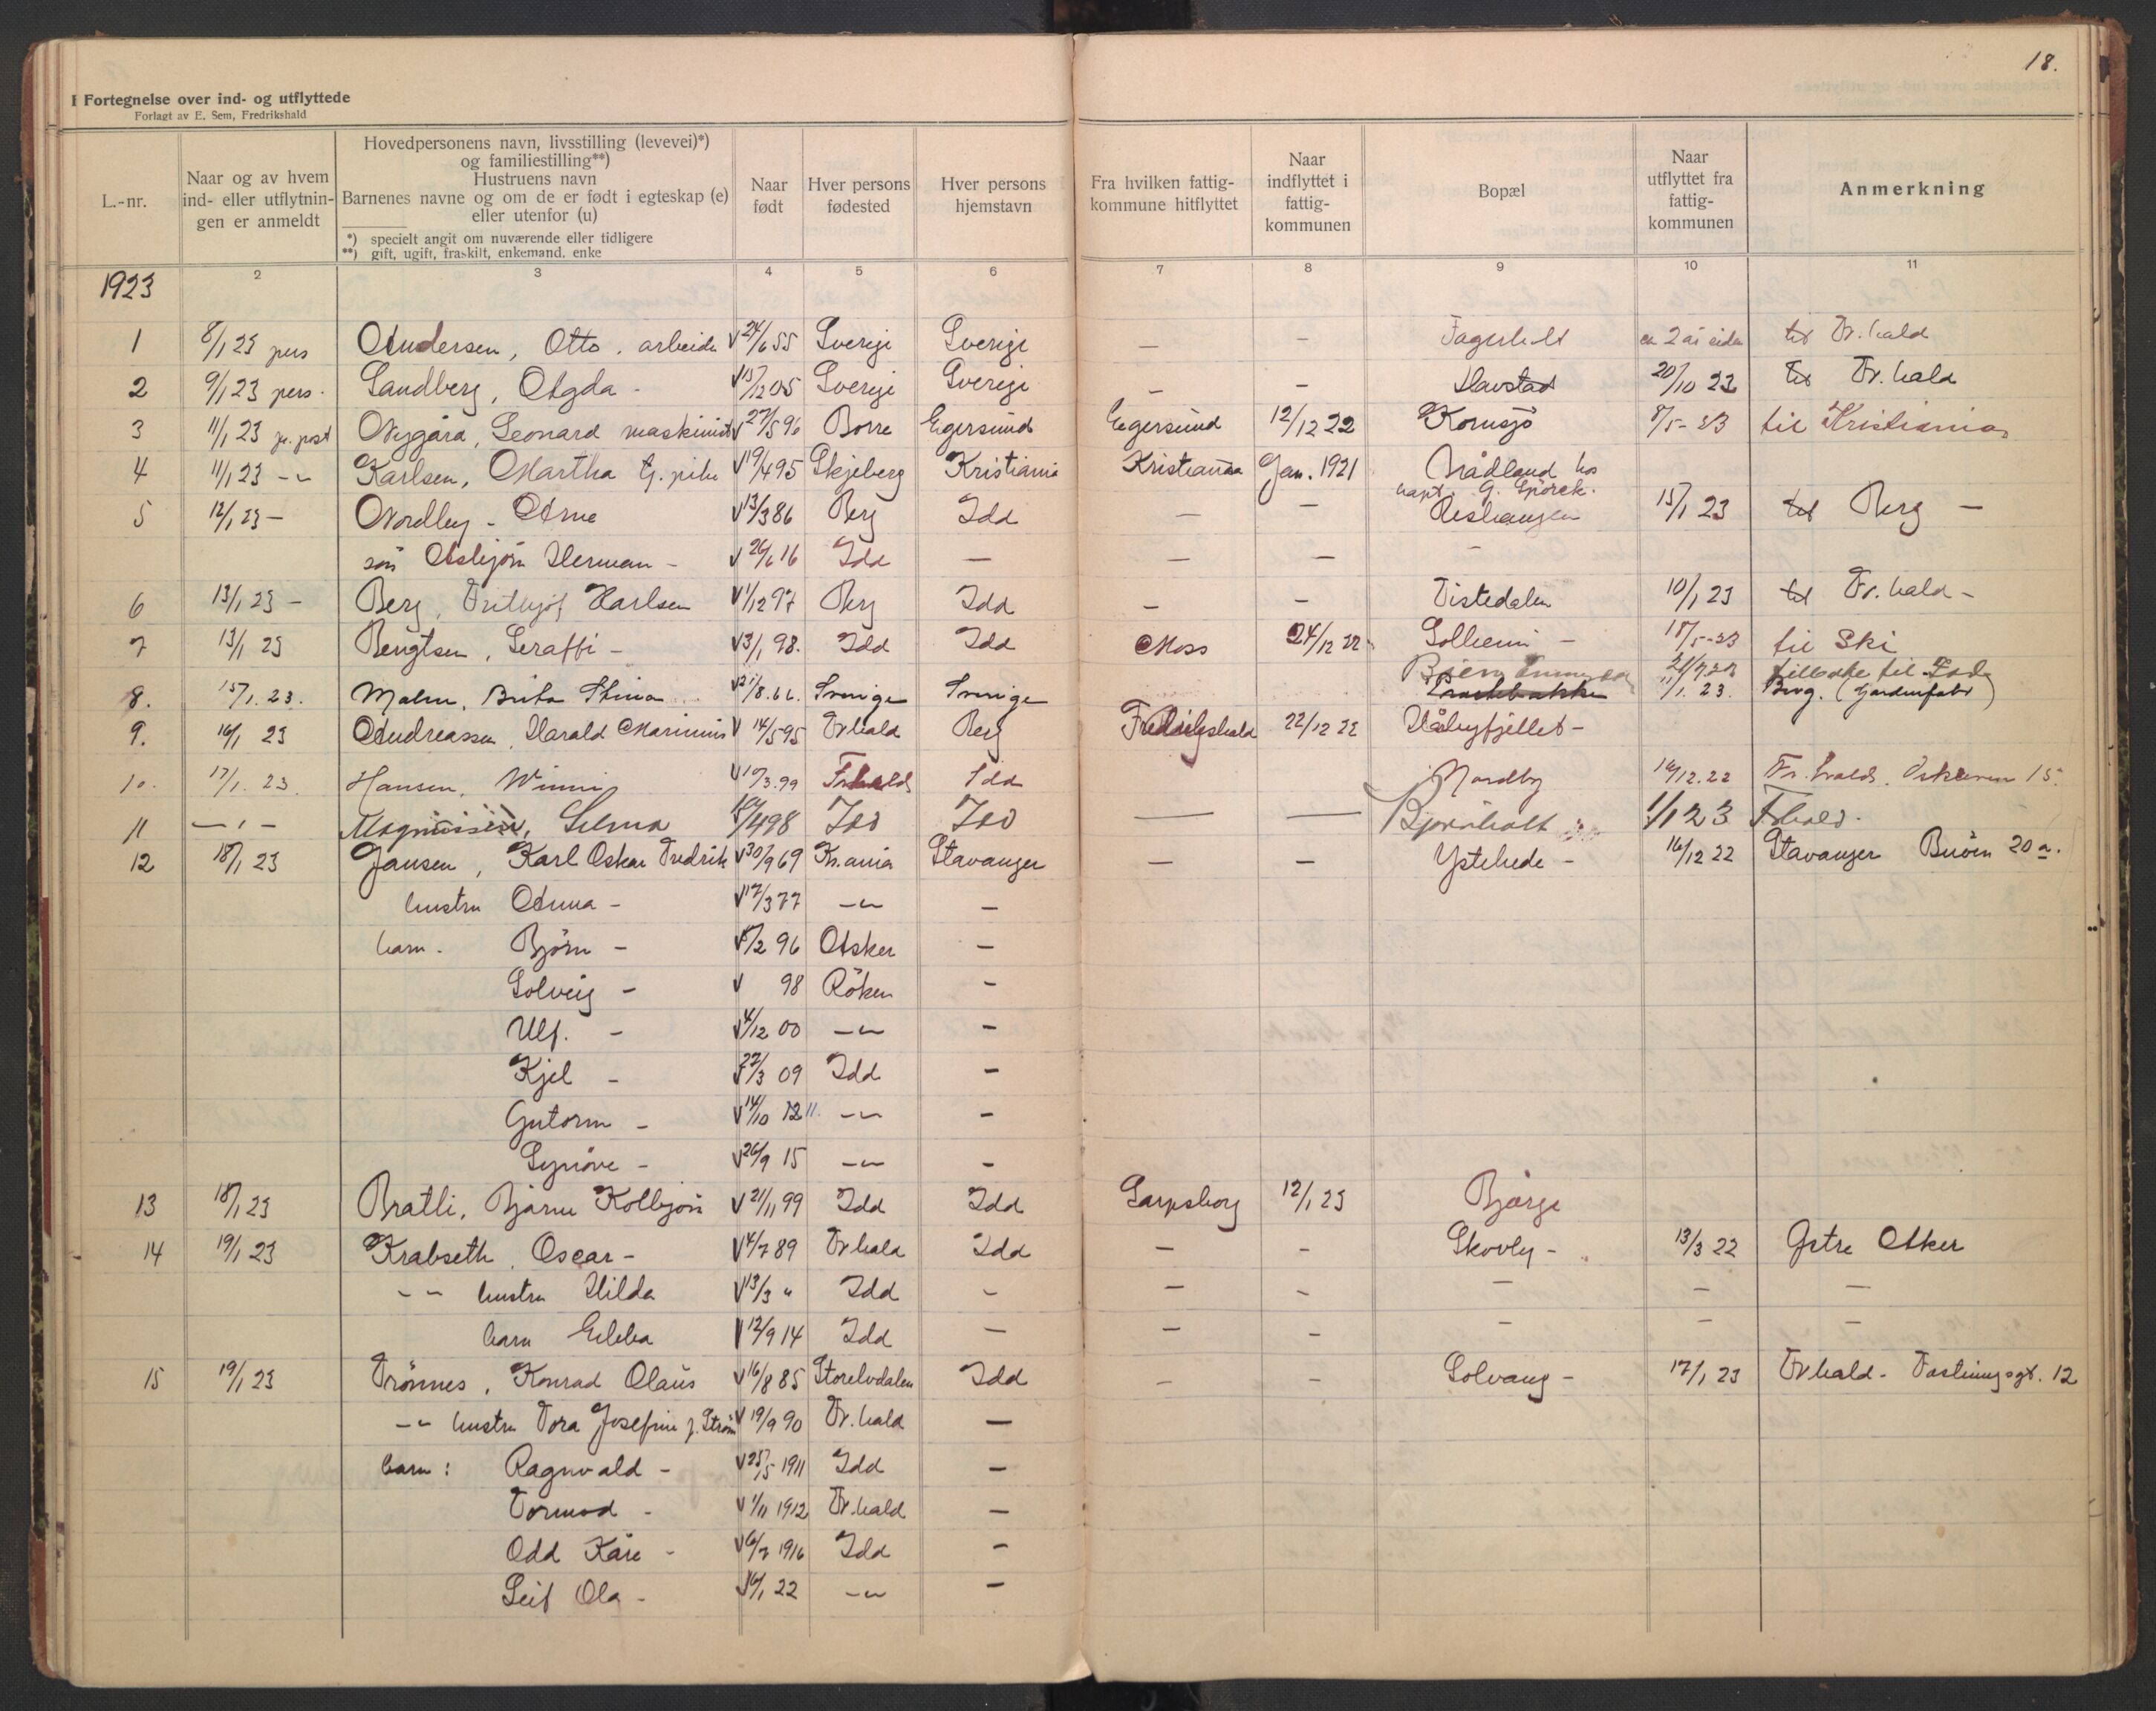 18.
I Fortegnelse over ind- og utflyttede
Forlagt av E. Sem, Fredrikshald
L.-nr.
Naar og av hvem ind- eller utflytnin- gen er anmeldt
Hovedpersonens navn, livsstilling (levevei)*)
og familiestilling**)
Hustruens navn
Barnenes navne og om de er født i egteskap (e)
eller utenfor (u)
*) specielt angit om nuværende eller tidligere
**) gift, ugift, fraskilt, enkemand, enke
Naar født
Hver persons fødested
Hver persons hjemstavn
Fra hvilken fattig- kommune hitflyttet
Naar indflyttet i fattig- kommunen
Bopæl
Naar utflyttet fra fattig- kommunen
Anmerkning
2 3 4 5 6 7 8 9 10 11
1923
1 8/1 23 pers Andersen, Otto. arbeider V 24/6 55 Sverige Sverige — — Fagerholt ca 2 år siden til Fr.hald
2 9/1 23 pers. Sandberg, Agda - V 15/12 05 Sverige Sverige — — Havstad 20/10 22 til Fr.hald
3 11/1 23 pr. post Nygård, Leonard maskinist V 27/5 96 Borre Egersund Egersund 12/12 22 Kornsjö 8/5-23 til Kristiania
4 11/1 23 -"- Karlsen, Martha tj. pike V 19/4 95 Skjeberg Kristiania Kristiania Jan. 1921 Nådland hos
kapt. G. Spörck.
5 12/1 23 - Nordby - Arne V 13/3 86 Berg Idd — — 15/1 23 til Berg —
sön Asbjörn Herman - V 26/6 16 Idd — — — -
6 13/1 23 - Berg, Frithjof Karlsen V 1/12 97 Berg Idd — — Tistedalen 10/1 23 til Fr.hald -
7 13/1 23 Bengtsen, Seraffi - V 3/1 98. Idd Idd Moss 24/12 22 Solheim - 18/5-23 til Ski
tilbake til Idd
8. 15/1. 23. Malm, Brita Stina V 21/8.66. Sverige Sverige 11/1. 23. Berg. (Gardinfabr)
9. 16/1 23 Andreassen, Harald Marinius V 14/5 95 Fr.hald Berg Fredrikshald 22/12 22 Håbyfjellet -
10. 17/1. 23. Hansen, Winni V 10/3.99 Fr.hald Idd Nordby 16/12.22 Fr.hald. 15.
11 — " — Magnussen, Selma 10/4 98 Idd Idd — — Bjørnholt 1/1 23 F.hald.
12 18/1 23 Jansen, Karl Oskar Fredrik V 30/9 69 Kr.ania Stavanger — — Ystehede - 16/12 22 Stavanger Buöen 20 a.
hustru Anna - V 17/3 77 -"- —
barn. Björn - V 5/2 96 Asker —
Solveig - V 98 Röken -
Ulf. - V 4/12 00 -"- -
Kjel - 27/3 09 Idd -
Gutorm - V 14/10 12 11. -"- -
Synöve - V 26/9 15 -"- -
13 18/1 23 Bratli, Bjarne Kolbjörn V 21/11 99 Idd Idd Sarpsborg 12/1 23 Björge
14 19/1 23 Krabseth, Oscar - V 4/7 89 Fr.hald Idd — - Skovly - 13/3 22 Östre Aker
-"- hustru Hilda V 13/3 " Idd - — - — — —
barn Ebba V 12/9 14 Idd — — - — — —
15 19/1 23 Trönnes, Konrad Olaus V 16/8 85 Storelvdalen Idd — - Solvang - 17/1 23 Fr.hald - Fæstningsgt. 12
-"- hustru Tora Josefine f. Ström V 19/9 90 Fr.hald —
barn: Ragnvald - V 25/5 1911 Idd —
Tormod - V 1/11 1912 Fr.hald —
Odd Kåre - V 6/7 1916 Idd -
Leif Ola - V 6/1 22 -"- -